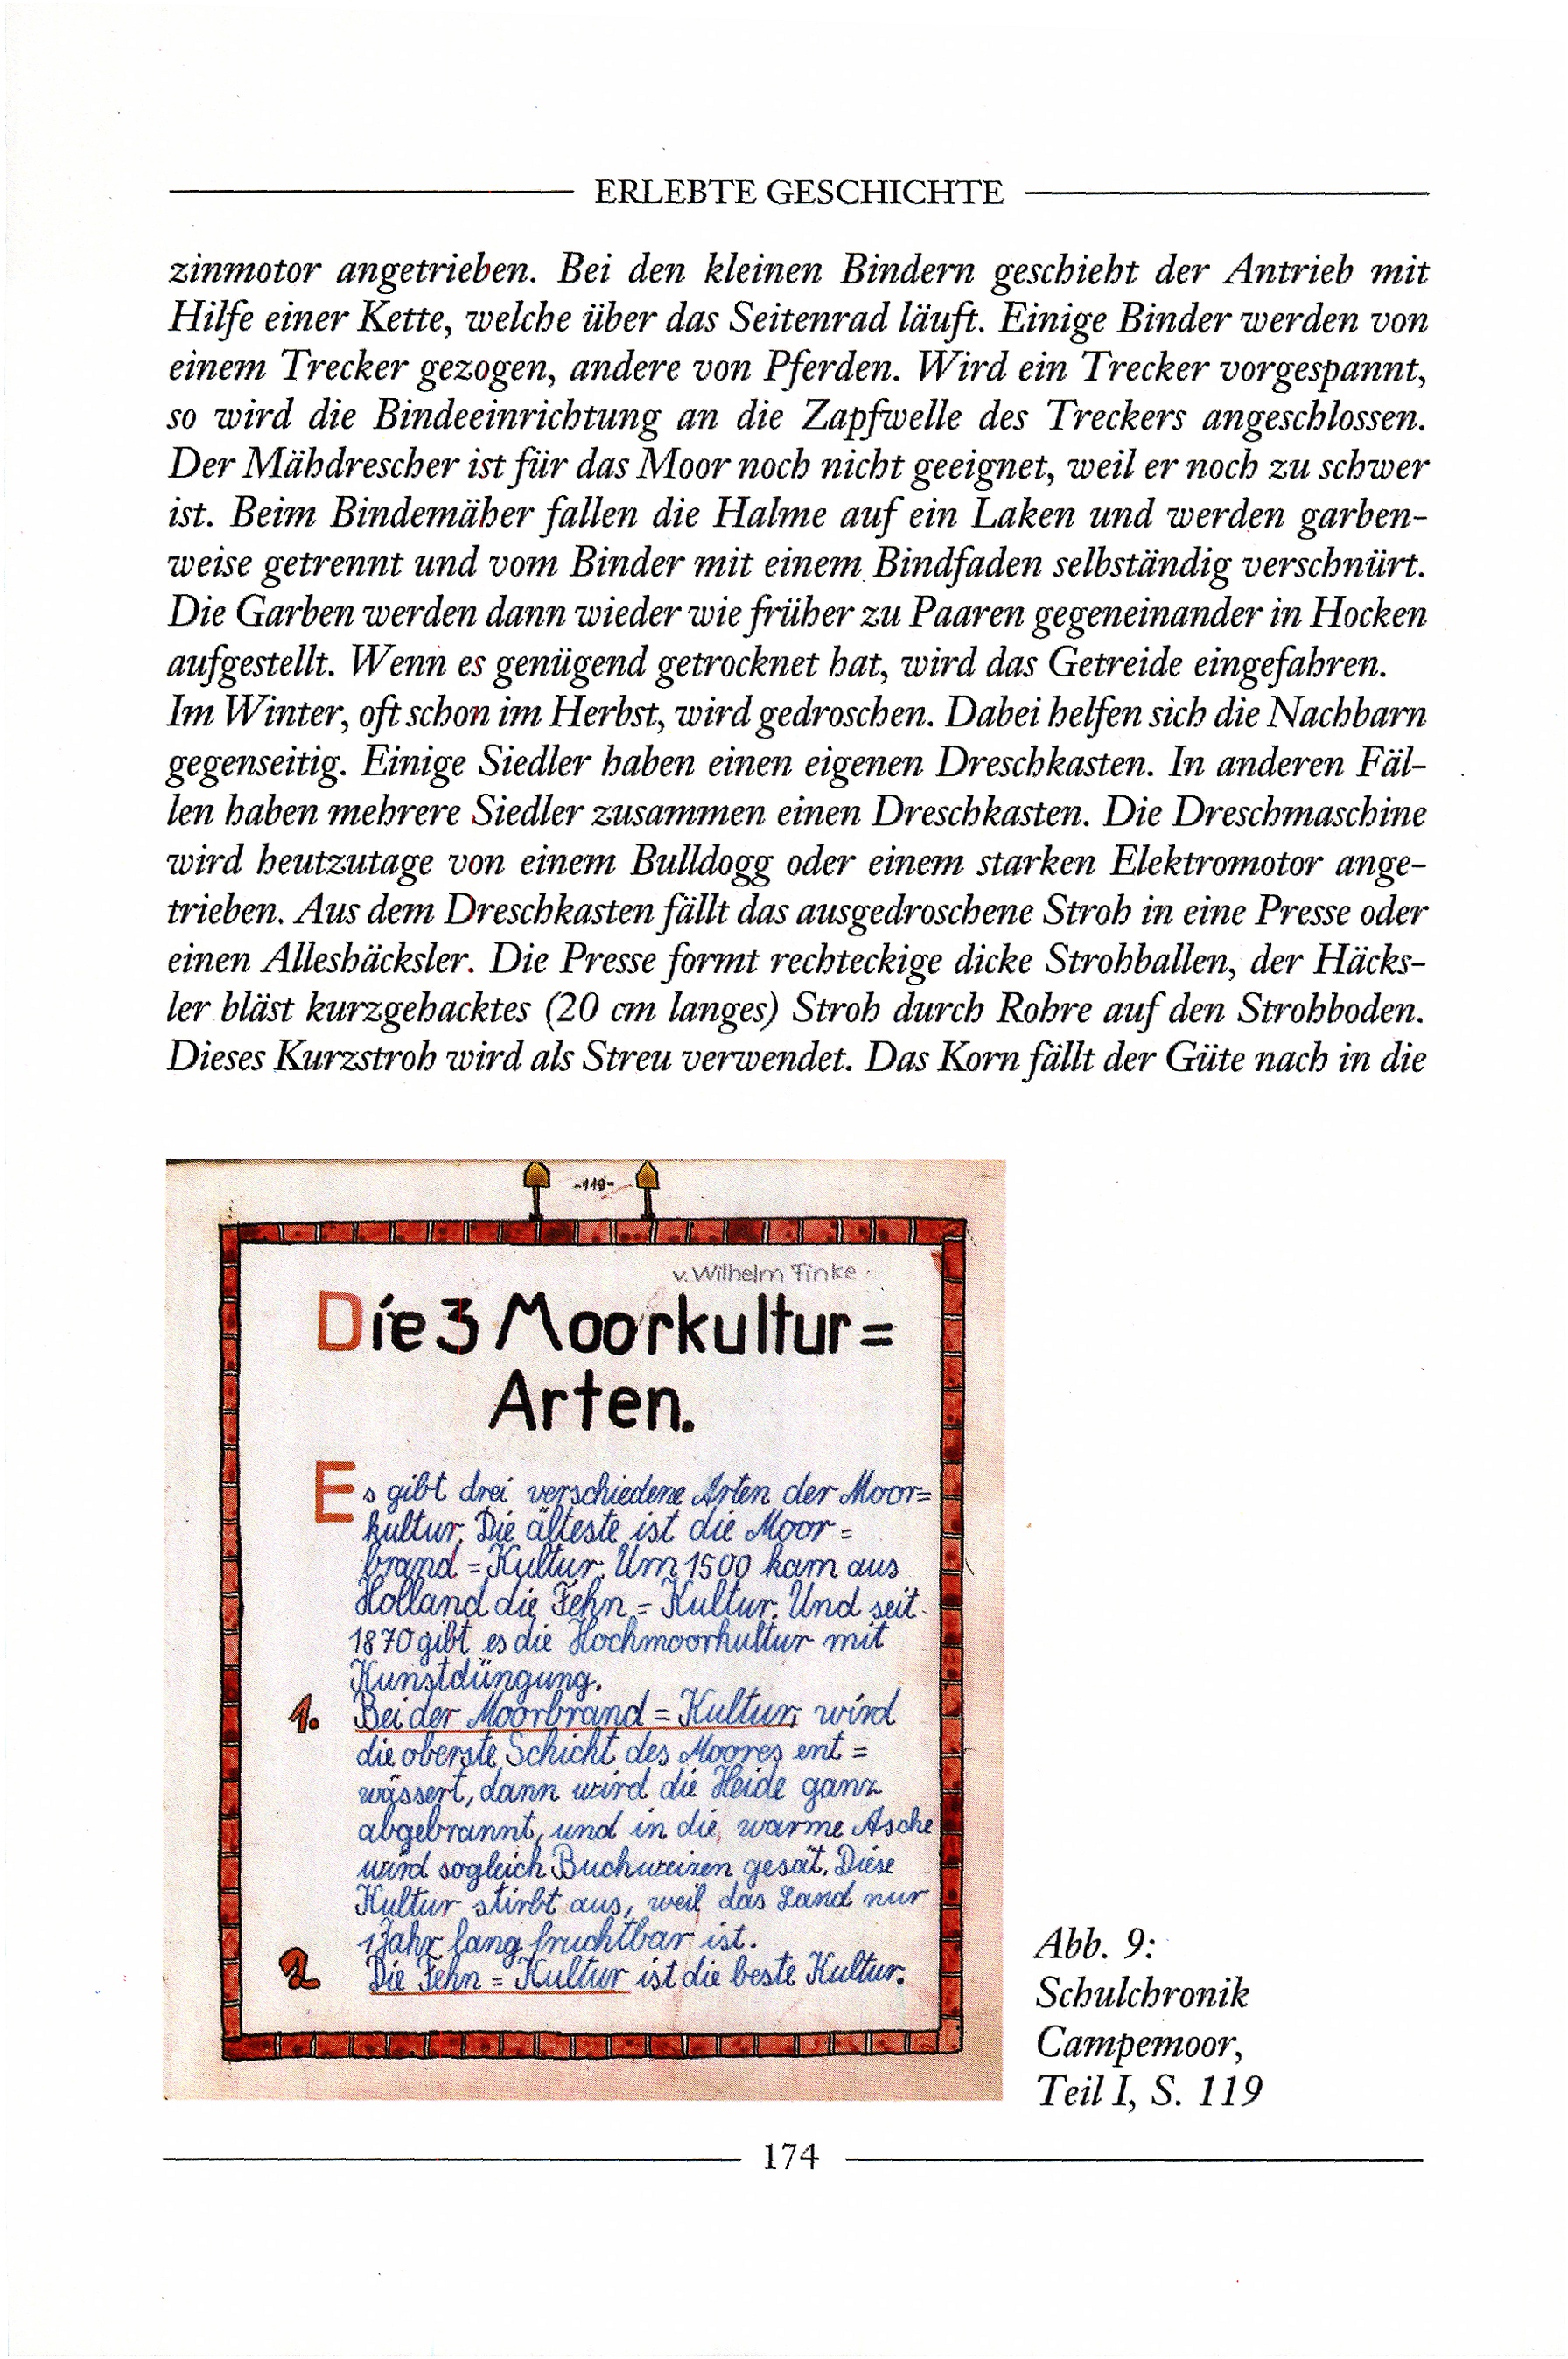 ERLEBTE GESCHICHTE
zinmotor angetrieben. Bei den kleinen Bindern geschieht der Antrieb mit
Hilfe einer Kette, welche über das Seitenrad läuft. Einige Binder werden von
einem Trecker gezogen, andere von Pferden. Wird ein Trecker vorgespannt,
so wird die Bindeeinrichtung an die Zapfwelle des Treckers angeschlossen.
Der Mähdrescher ist für das Moor noch nicht geeignet, weil er noch zu schwer
ist. Beim Bindemäher fallen die Halme auf ein Laken und werden garben-
weise getrennt und vom Binder mit einem Bindfaden selbständig verschnürt.
Die Garben werden dann wieder wie früher zu Paaren gegeneinander in Hocken
aufgestellt. Wenn es genügend getrocknet hat, wird das Getreide eingefahren.
Im Winter, oft schon im Herbst, wird gedroschen. Dabei helfen sich die Nachbarn
gegenseitig. Einige Siedler haben einen eigenen Dreschkasten. In anderen Fäl-
len haben mehrere Siedler zusammen einen Dreschkasten. Die Dreschmaschine
wird heutzutage von einem Bulldogg oder einem starken Elektromotor ange-
trieben. Aus dem Dreschkasten fällt das ausgedroschene Stroh in eine Presse oder
einen Alleshäcksler. Die Presse formt rechteckige dicke Strohballen, der Häcks-
ler bläst kurzgehacktes (20 cm langes) Stroh durch Rohre auf den Strohboden.
Dieses Kurzstroh wird als Streu verwendet. Das Korn fällt der Güte nach in die
-119-
v. Wilhelm Finke.
Die 3 Moorkultur=
Arten.
Es gibt drei verschiedene Arten der Moor=
kultur. Die älteste ist die Moor=
brand=Kultur. Um 1500 kam aus
Holland die Fehn=Kultur. Und seit
1870 gibt es die Hochmoorkultur mit
Kunstdüngung.
1. Bei der Moorbrand=Kultur, wird
die oberste Schicht des Moores ent=
wässert, dann wird die Heide ganz
abgebrannt, und in die warme Asche
wird sogleich Buchweizen gesät. Diese
Kultur stirbt aus, weil das Land nur
1 Jahr lang fruchtbar ist.
2 Die Fehn=Kultur ist die beste Kultur.
Abb. 9:
Schulchronik
Campemoor,
Teil I, S. 119
174